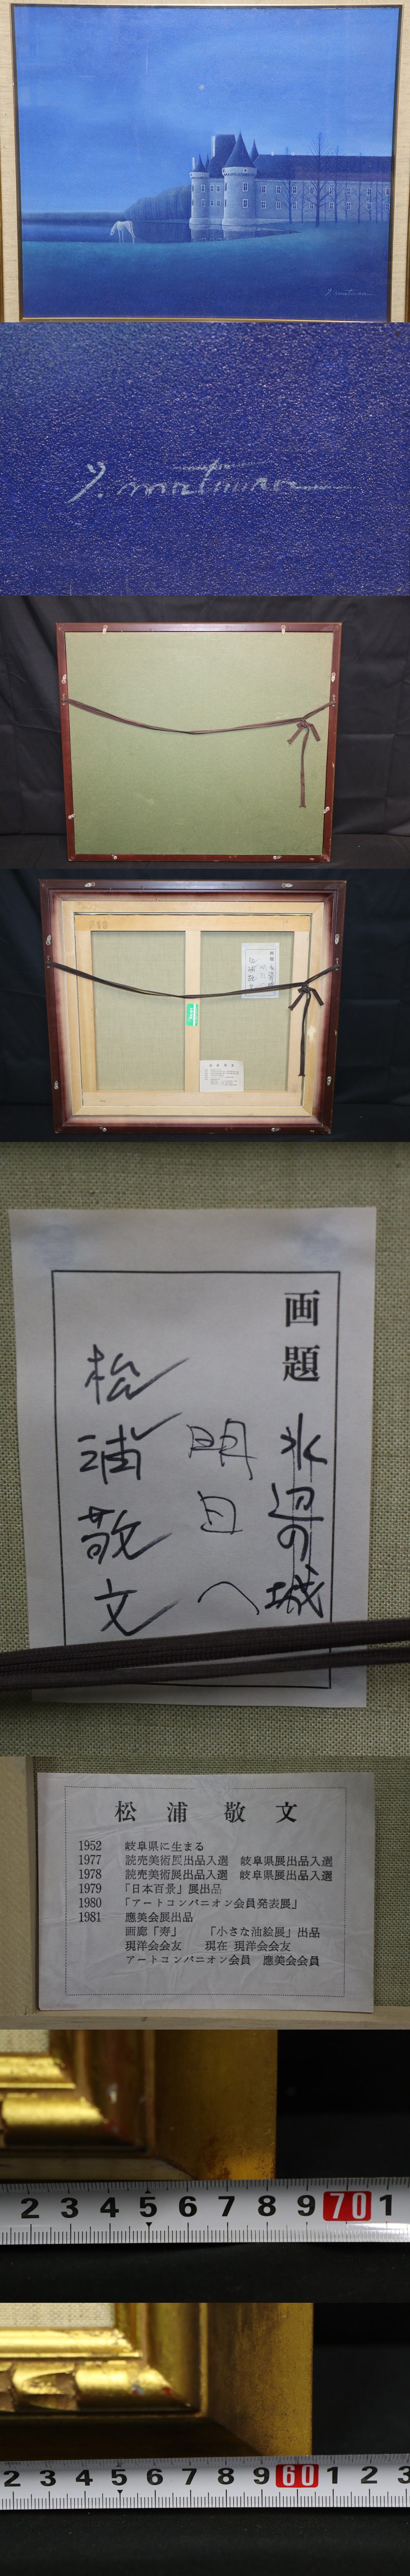 Y. matuura
画題 水辺の城
明日へ
松浦敬文
松浦敬文
1952 岐阜県に生まる
1977 読売美術展出品入選 岐阜県展出品入選
1978 読売美術展出品入選 岐阜県展出品入選
1979 「日本百景」展出品
1980 「アートコンパニオン会員発表展」
1981 應美会展出品
画廊「寿」 「小さな油絵展」出品
現洋会会友 現在 現洋会会友
アートコンパニオン会員 應美会会員
2 3 4 5 6 7 8 9 70 1
2 3 4 5 6 7 8 9 60 1 2 3